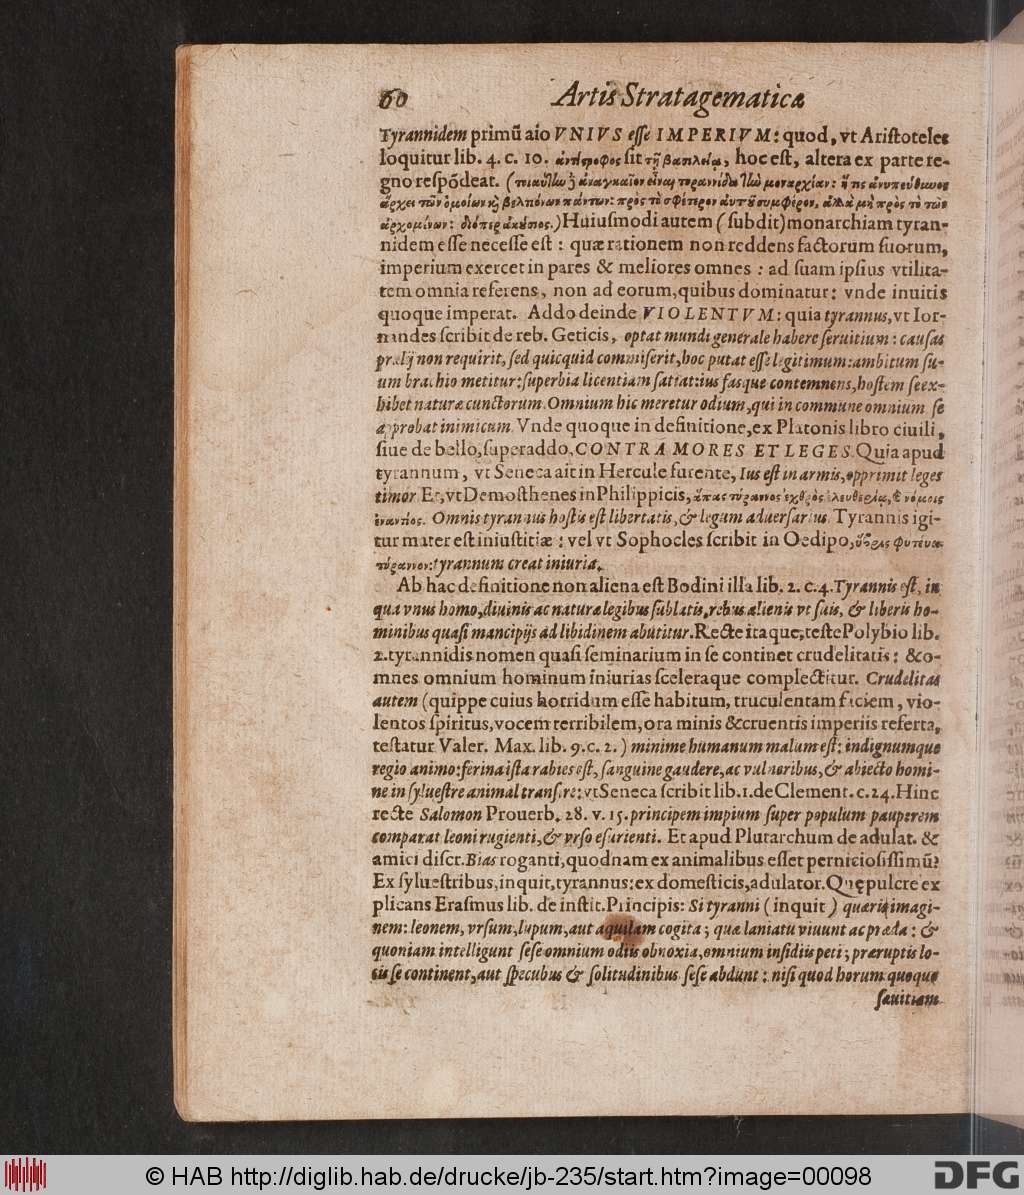 60 Artis Stratagematicæ
Tyrannidem primũ aio VNIVS esse IMPERIVM: quod, vt Aristoteles
loquitur lib. 4. c. 10. ἀντίστροφος sit τῇ βασιλείᾳ, hoc est, altera ex parte re-
gno respõdeat. (τοιαύτίω ἀναγκαῖον εἶναι τυραννίδα τίω μοναρχίαν: ἥτις ἀνυπεύθυνος
ἄρχει τῶν ὁμοίων κὶ βελτιόνων πάντων: πρὸς τὸ σφέτερον αὐτῆ συμφέρον, ἀλλὰ μὴ πρὸς τὸ τῶν
ἀρχομένων: διόπερ ἀκούσιος.) Huiusmodi autem (subdit) monarchiam tyran-
nidem esse necesse est: quæ rationem non reddens factorum suorum,
imperium exercet in pares & meliores omnes: ad suam ipsius vtilita-
tem omnia referens, non ad eorum, quibus dominatur: vnde inuitis
quoque imperat. Addo deinde VIOLENTVM: quia tyrannus, vt Ior-
nandes scribit de reb. Geticis, optat mundi generale habere seruitium: causas
prælij non requirit, sed quicquid commiserit, hoc putat esse legitimum: ambitum su-
um brachio metitur: superbia licentiam satiat: ius fasque contemnens, hostem se ex-
hibet naturæ cunctorum. Omnium hic meretur odium, qui in commune omnium se
approbat inimicum. Vnde quoque in definitione, ex Platonis libro ciuili,
siue de bello, superaddo, CONTRA MORES ET LEGES. Quia apud
tyrannum, vt Seneca ait in Hercule furente, Ius est in armis, opprimit leges
timor Et, vt Demosthenes in Philippicis, ἅπας τύραννος ἐχθρὸς ἐλευθερίᾳ, & νόμοις
ἐναντίος. Omnis tyrannus hostis est libertatis, & legum aduersarius. Tyrannis igi-
tur mater est iniustitiæ: vel vt Sophocles scribit in Oedipo, ὕβρις φυτεύει
τύραννον: tyrannum creat iniuria.
Ab hac definitione non aliena est Bodini illa lib. 2. c. 4. Tyrannis est, in
qua vnus homo, diuinis ac naturæ legibus sublatis, rebus alienis vt suis, & liberis ho-
minibus quasi mancipijs ad libidinem abutitur. Recte itaque, teste Polybio lib.
2. tyrannidis nomen quasi seminarium in se continet crudelitatis: & o-
mnes omnium hominum iniurias sceleraque complectitur. Crudelitas
autem (quippe cuius horridum esse habitum, truculentam faciem, vio-
lentos spiritus, vocem terribilem, ora minis & cruentis imperiis referta,
testatur Valer. Max. lib. 9. c. 2.) minime humanum malum est: indignumque
regio animo: ferina ista rabies est, sanguine gaudere, ac vulneribus, & abiecto homi-
ne in syluestre animal transire: vt Seneca scribit lib. 1. de Clement. c. 24. Hinc
recte Salomon Prouerb. 28. v. 15. principem impium super populum pauperem
comparat leoni rugienti, & vrso esurienti. Et apud Plutarchum de adulat. &
amici discr. Bias roganti, quodnam ex animalibus esset perniciosissimũ?
Ex syluestribus, inquit, tyrannus: ex domesticis, adulator. Quę pulcre ex
plicans Erasmus lib. de instit. Principis: Si tyranni (inquit) quæris imagi-
nem: leonem, vrsum, lupum, aut aquilam cogita; quæ laniatu viuunt ac præda: &
quoniam intelligunt sese omnium odiis obnoxia, omnium insidiis peti; præruptis lo-
cis se continent, aut specubus & solitudinibus sese abdunt: nisi quod horum quoque
sæuitiam
© HAB http://diglib.hab.de/drucke/jb-235/start.htm?image=00098
DFG